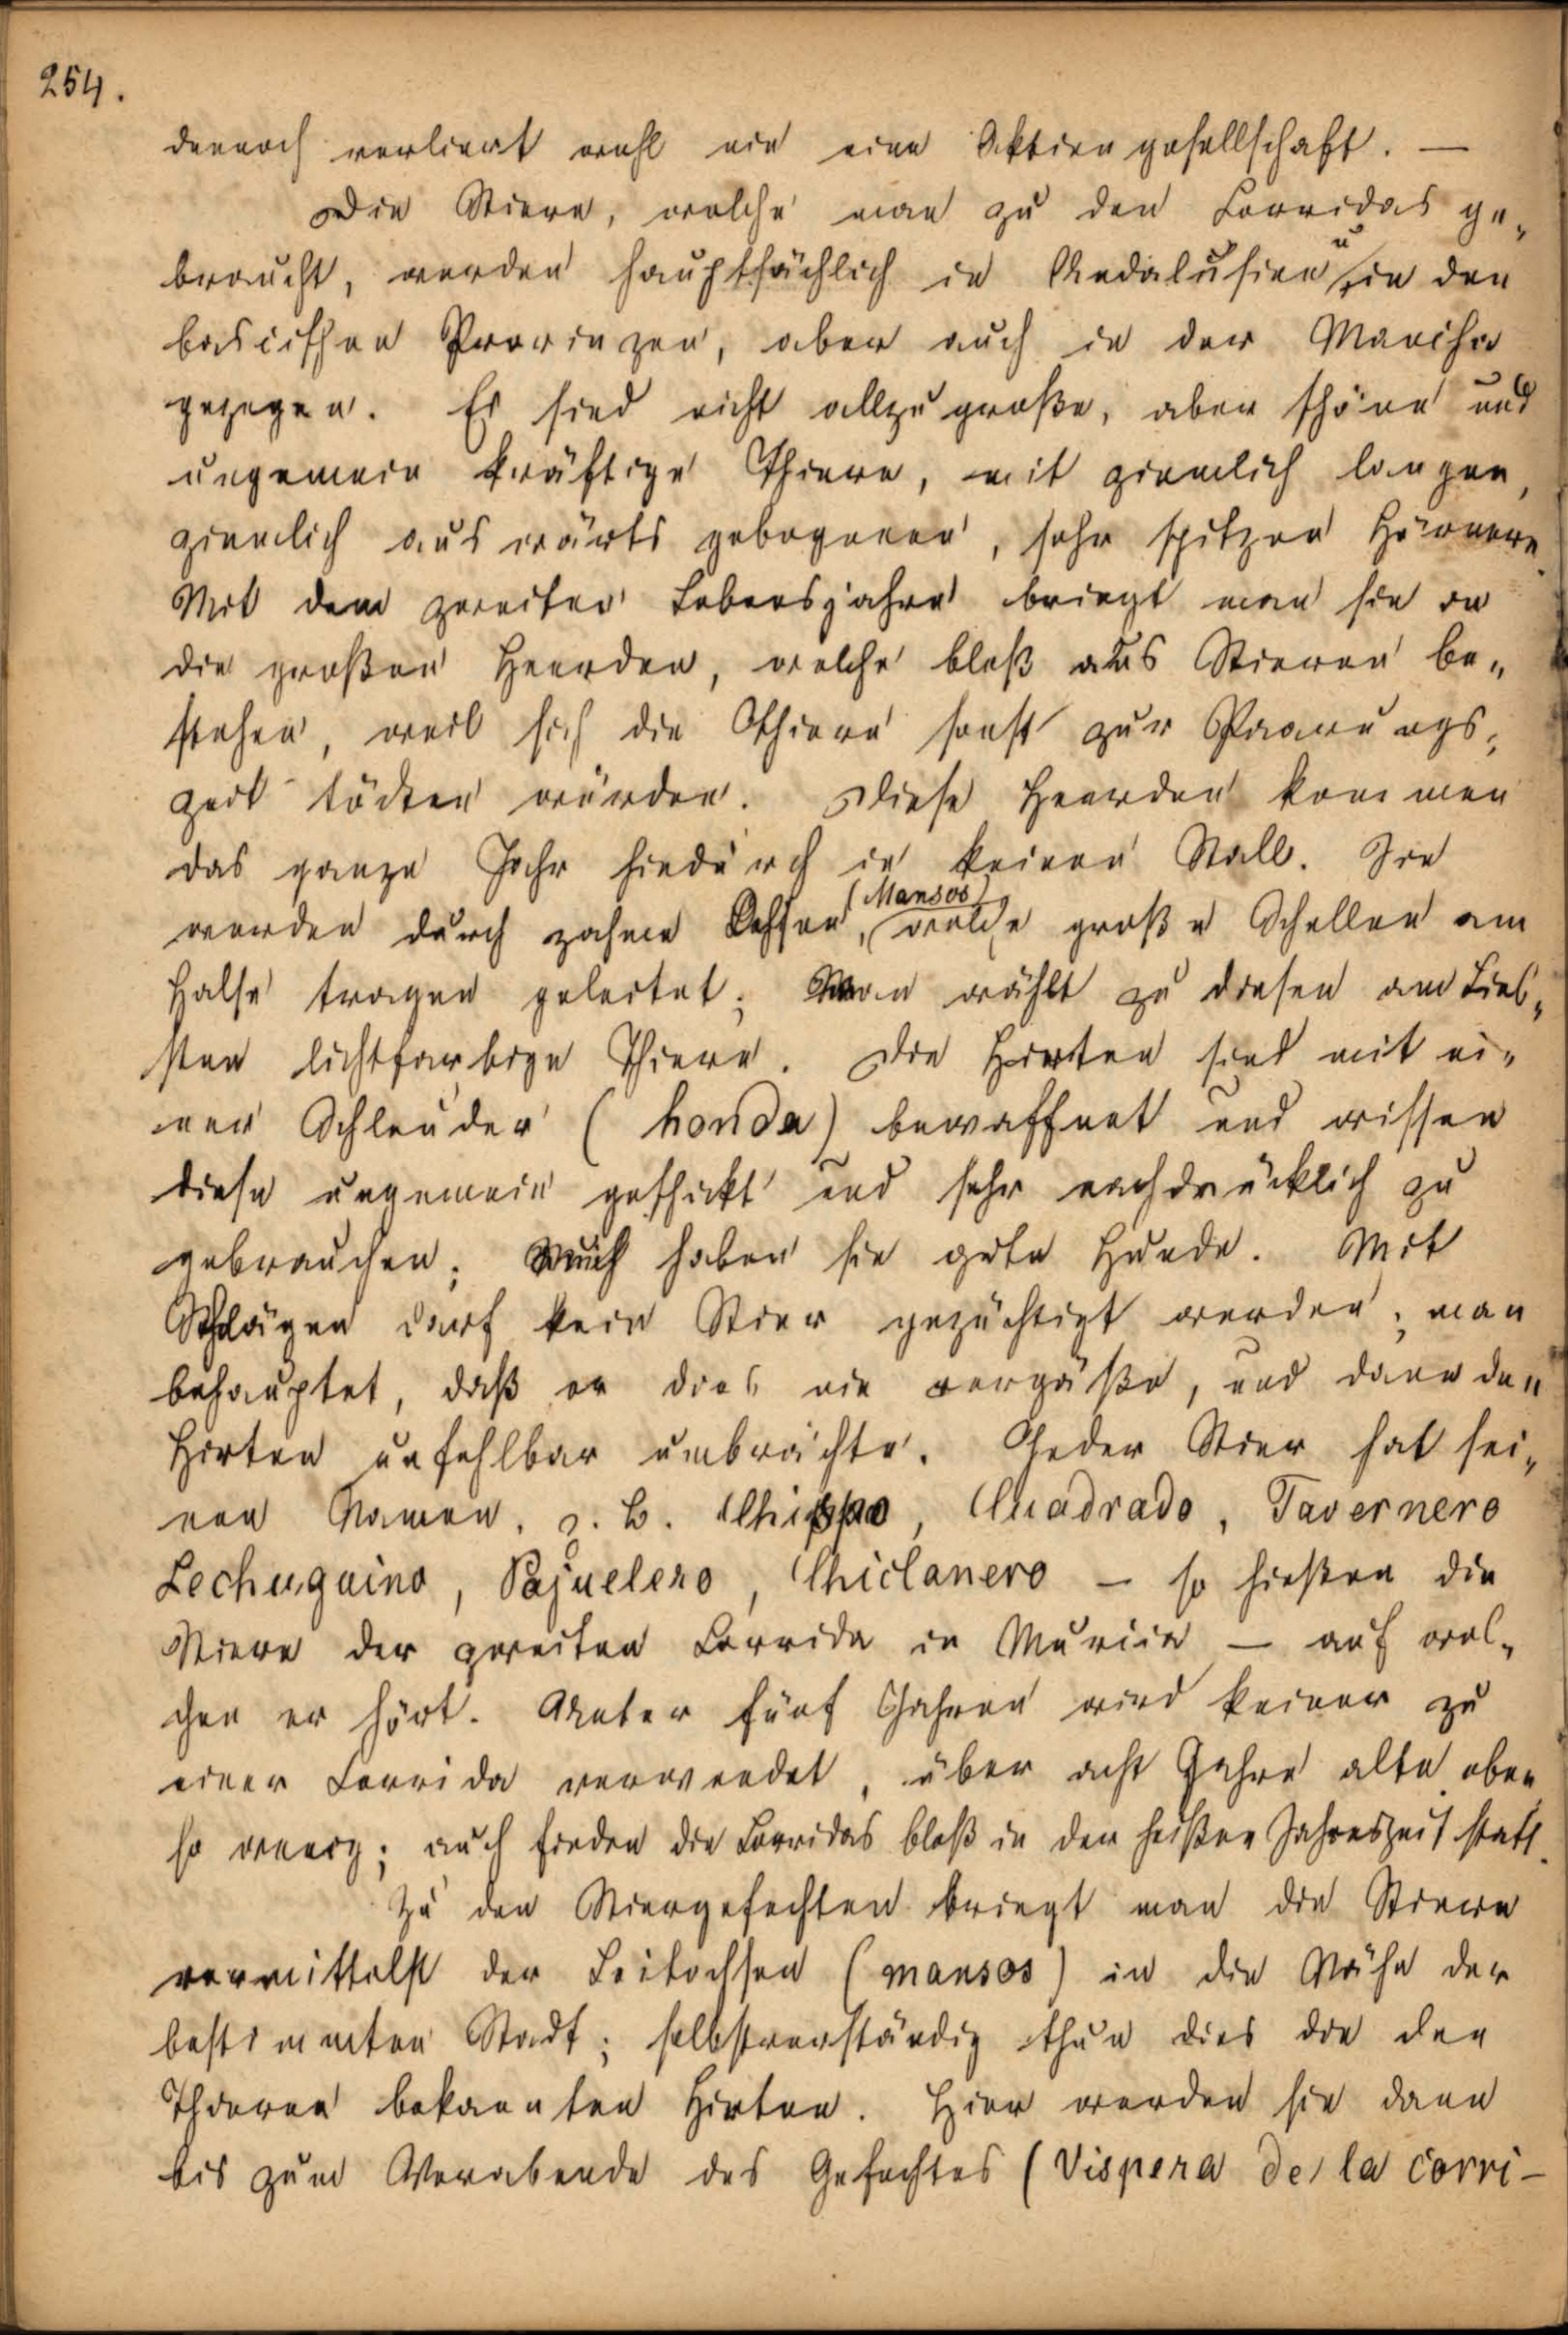 254.
dennoch verliert wohl nie eine Aktiengesellschaft. —
Die Stiere, welche man zu den Corridas ge„
braucht, werden hauptsächlich in Andalusien u in den
bascischen Provinzen, aber auch in der Mancha
gezogen. Es sind nicht allzugroße, aber schöne und
ungemein kräftige Thiere, mit ziemlich langen,
ziemlich auswärts gebogenen, sehr spitzen Hörnern.
Mit dem zweiten Lebensjahre bringt man sie in
die großen Heerden, welche bloß aus Stieren be„
stehen, weil sich die Thiere sonst zur Paarungs„
zeit tödten würden. Diese Heerden kommen
das ganze Jahr hindurch in keinen Stall. Sie
werden durch zahme Ochsen, (Mansos) welche große Schellen am
Halse tragen geleitet; Man wählt zu diesen am Lieb„
sten lichtfarbige Thiere. Die Hirten sind mit ei„
ner Schleuder (honda) bewaffnet und wissen
diese ungemein geschickt und sehr nachdrücklich zu
gebrauchen; Auch haben sie gute Hunde. Mit
Schlägen darf kein Stier gezüchtigt werden; man
behauptet, daß er dies nie vergäße, und dann den
Hirten unfehlbar umbrächte. Jeder Stier hat sei„
nen Namen, z. B. Cuadrado, Tavernero
Lechuguino, Pajuelero, Chiclanero — so hießen die
Stiere der zweiten Corrida in Murcia — auf wel„
chen er hört. Unter fünf Jahren wird keiner zu
einer Corrida verwendet, über acht Jahre alte eben
so wenig; auch finden die Corridas bloß in der heißen Jahreszeit statt.
Zu den Stiergefechten bringt man die Stiere
vermittelst der Leitochsen (mansos) in die Nähe der
bestimmten Stadt; selbstverständig thun dies die den
Thieren bekannten Hirten. Hier werden sie dann
bis zum Vorabende des Gefechtes (Vispera de la corri-